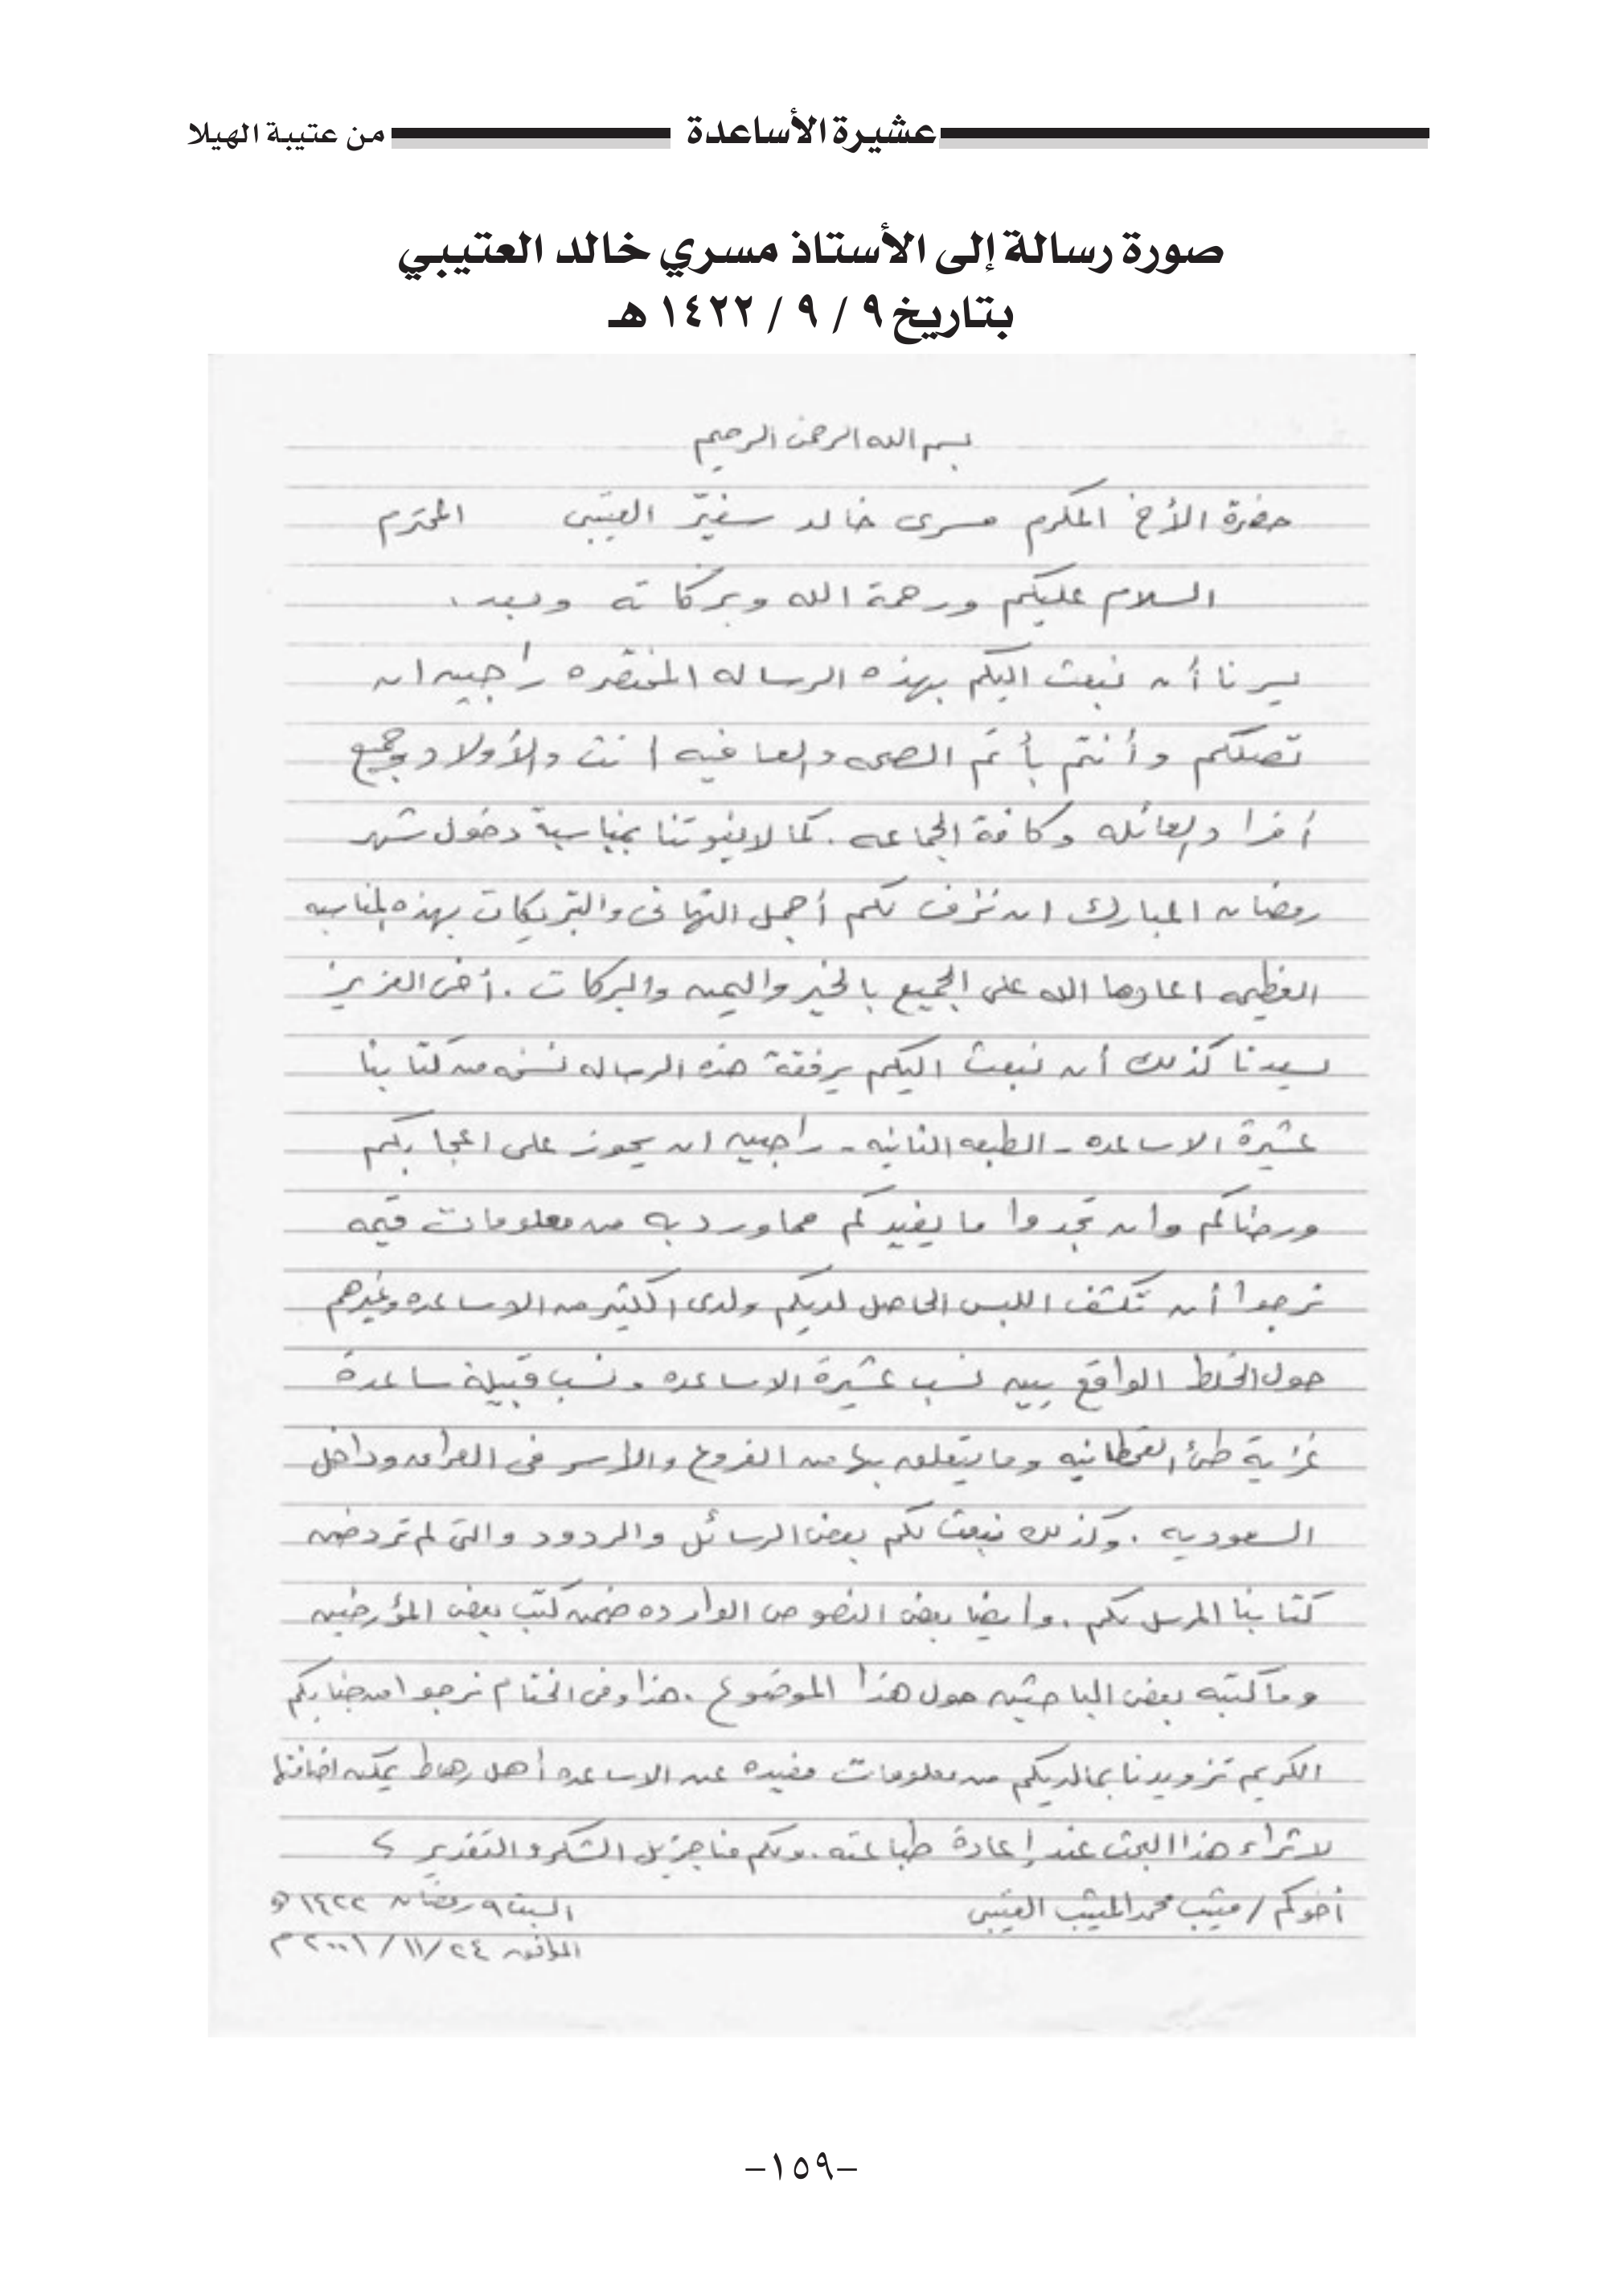 عشيرة الأساعدة من عتيبة الهيلا
صورة رسالة إلى الأستاذ مسري خالد العتيبي
بتاريخ ٩ / ٩ / ١٤٢٢ هـ
بسم الله الرحمن الرحيم
حضرة الأخ المكرم مسرى خالد سفيّر العتيبى المحترم
السلام عليكم ورحمة الله وبركاته وبعد،
يسرنا أن نبعث اليكم بهذه الرساله المختصره راجين ان
تصلكم وأنتم بأتم الصحه والعافيه انت والأولاد وجميع
أفراد والعائله وكافة الجماعه . كما لايفوتنا بمناسبة دخول شهر
رمضان المبارك ان نزف لكم أجمل التهانى والتبريكات بهذه المناسبه
العظيمه اعادها الله على الجميع بالخير واليمن والبركات . أخى العزيز
يسعدنا كذلك أن نبعث اليكم برفقة هذه الرساله نسخه من كتابنا
عشيرة الاساعده - الطبعه الثانيه - راجين ان يحوز على اعجابكم
ورضاكم وان تجدوا ما يفيدكم مما ورد به من معلومات قيمه
نرجوا أن تكشف اللبس الحاصل لديكم ولدى الكثير من الاساعده وغيرهم
حول الخلط الواقع بين نسب عشيرة الاساعده ونسب قبيلة ساعدة
غزية طئ القحطانيه وما يتعلق بها من الفروع والأسر فى العراق وداخل
السعوديه . وكذلك نبعث لكم بعض الرسائل والردود والتى لم ترد ضمن
كتابنا المرسل لكم . وايضا بعض النصوص الوارده ضمن كتب بعض المؤرخين
وما كتبه بعض الباحثين حول هذا الموضوع . هذا وفى الختام نرجوا من جنابكم
الكريم تزويدنا بمالديكم من معلومات مفيده عن الاساعده أهل رهاط يمكن اضافتها
لاثراء هذا البحث عند إعادة طباعته . ولكم منا جزيل الشكر والتقدير ؟
أخوكم / مثيب محمد المثيب العتيبى السبت ٩ رمضان ١٤٢٢ هـ
الموافق ٢٤ / ١١ / ٢٠٠١ م
-١٥٩-